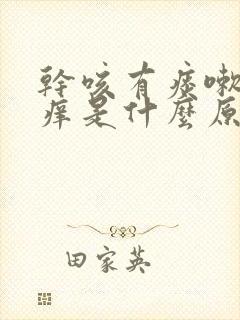 幹咳有痰嗽
痒是什麼原
田家英